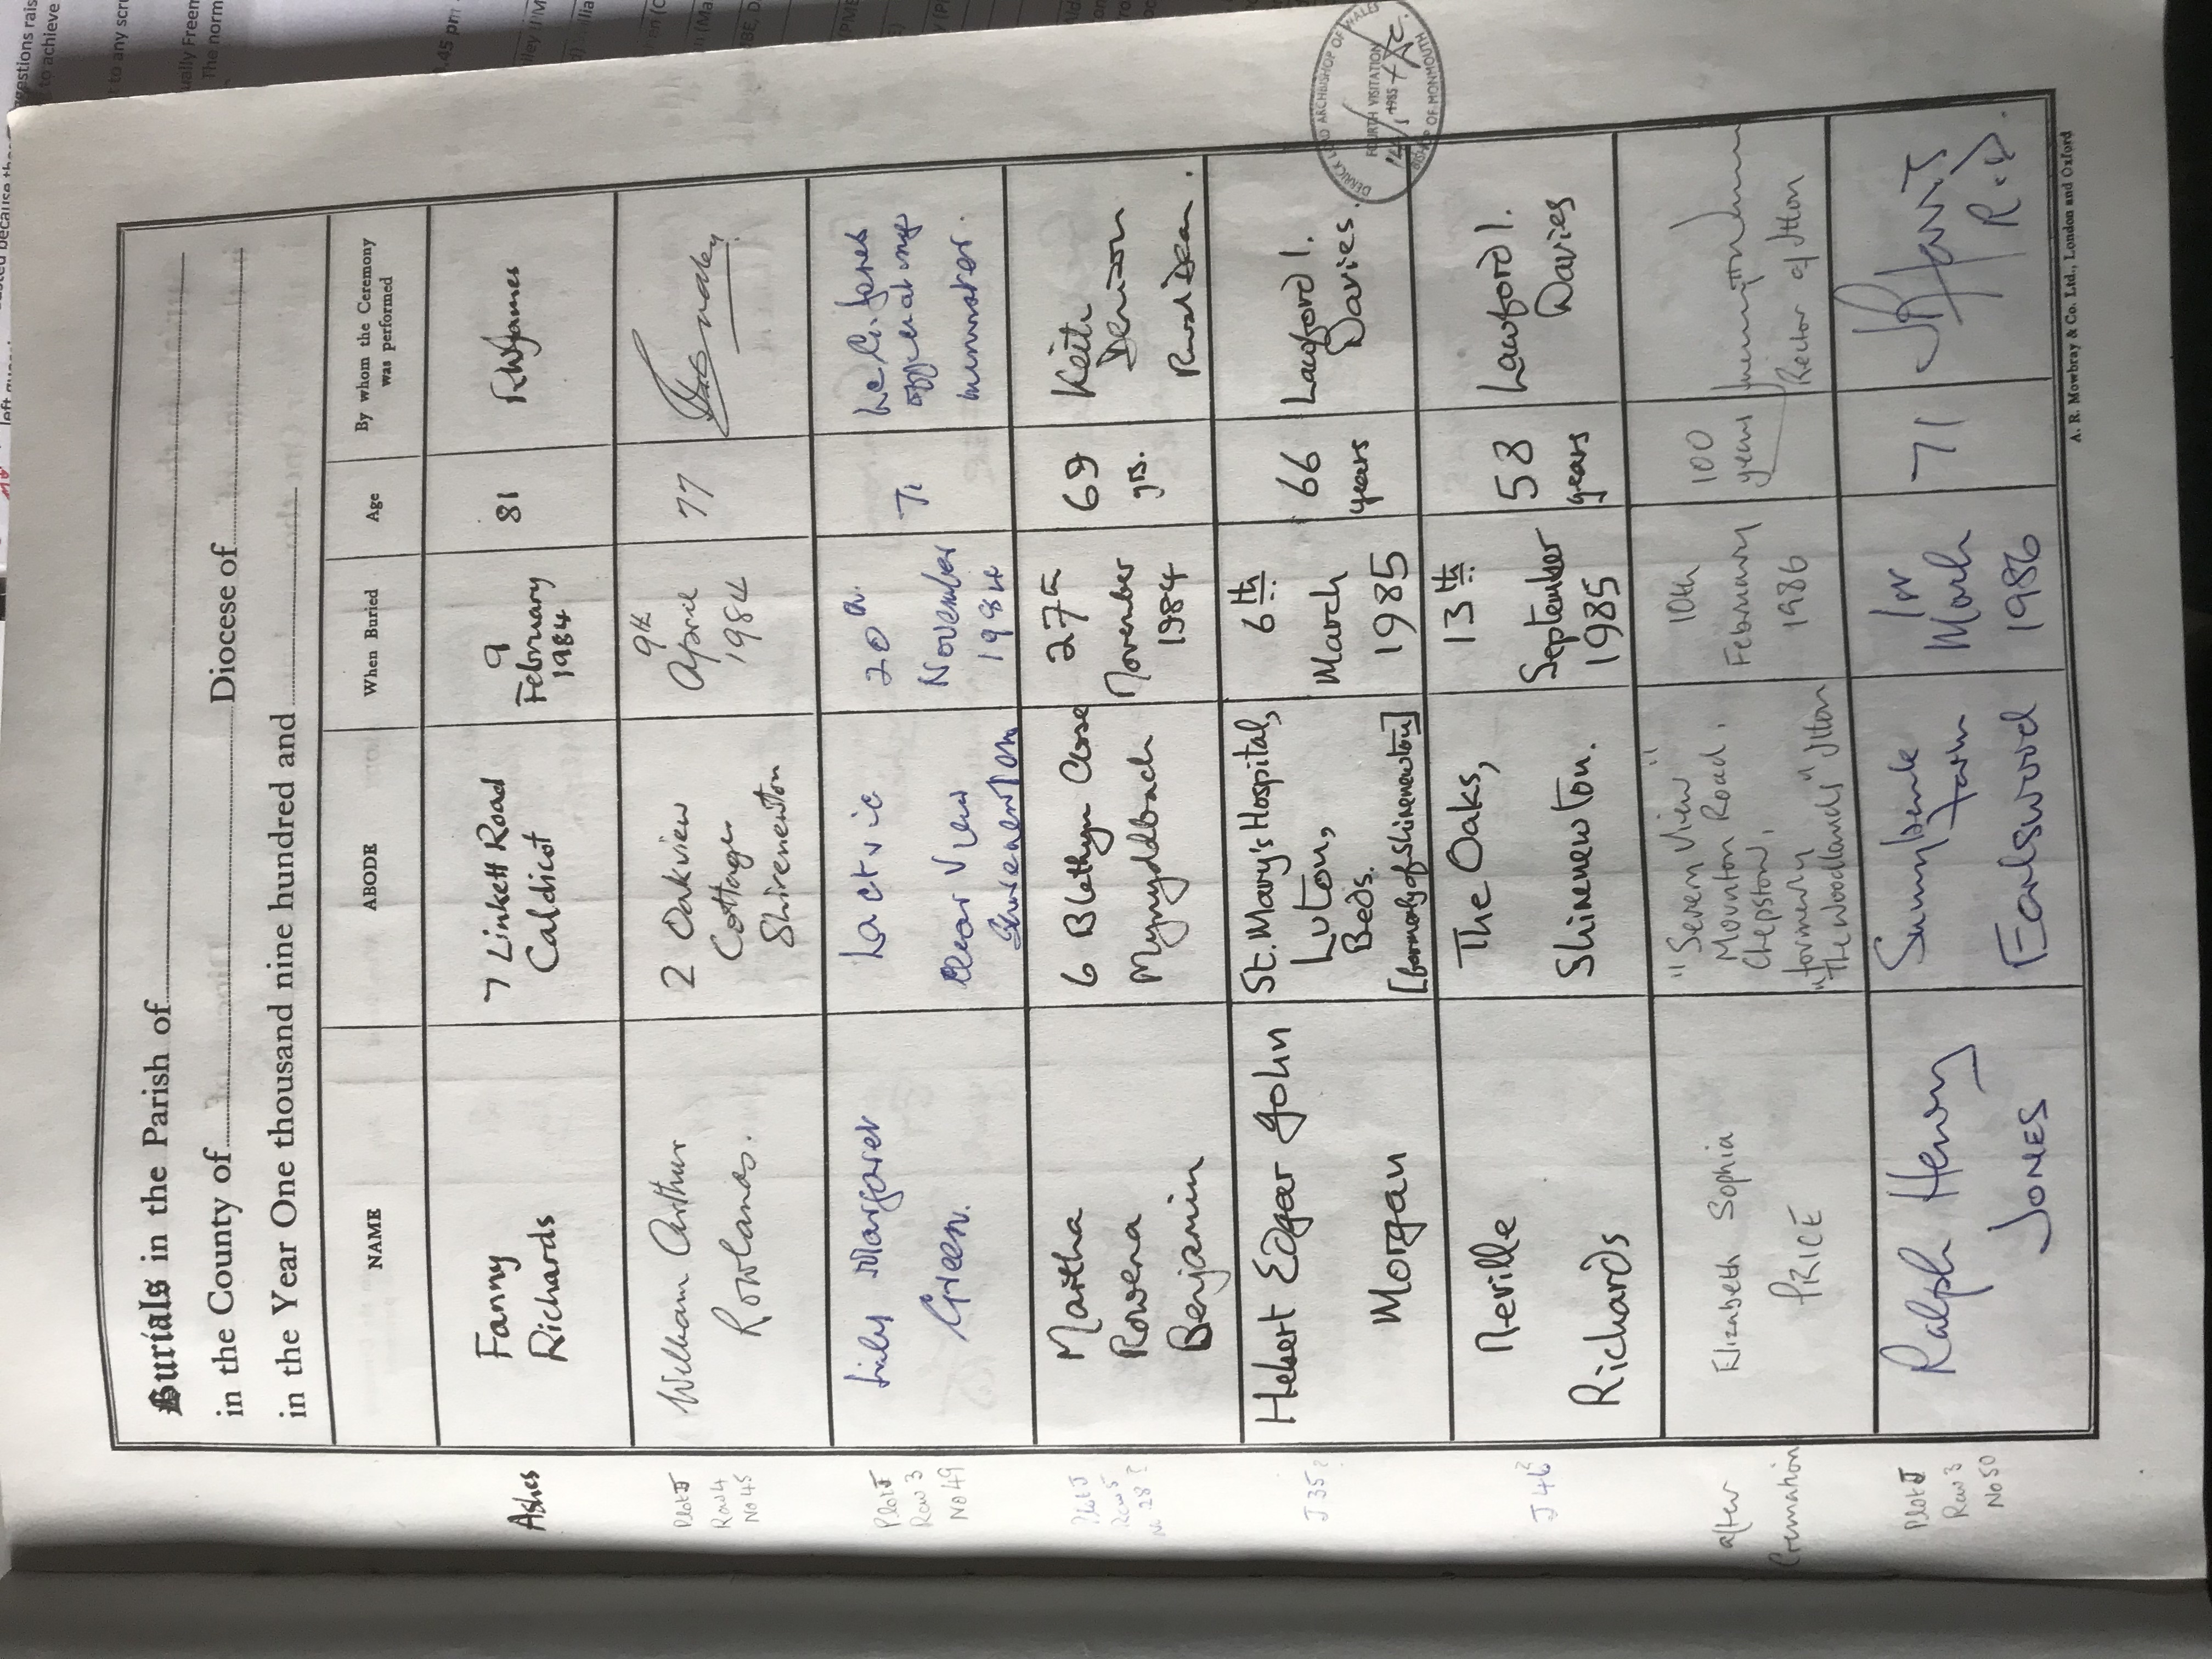 Burials in the Parish of
in the County of Diocese of
in the Year One thousand nine hundred and
NAME
ABODE
When Buried
Age
By whom the Ceremony
was performed
Ashes
Fanny
Richards
7 Linkett Road
Caldicot
9
February
1984
81
Plot J
Row 4
No 45
William Arthur
Rowlands.
2 Oakview
Cottages
Shirenewton
9th
April
1984
77
Plot J
Row 3
No 49
Lily Margaret
Green.
View
Shirenewton
20th
November
1984
71
Jones
officiating
minister.
Plot J
Row 5
No 28?
Martha
Rowena
Benjamin
6 Blethyn Close
Mynyddbach
27th
November
1984
69
yrs.
Keith
Denison
Rural Dean.
J 35?
Hebert Edgar John
Morgan
St. Mary's Hospital,
Luton,
Beds.
[formerly of Shirenewton]
6th
March
1985
66
years
Lawford I.
Davies.
J 46?
Neville
Richards
The Oaks,
Shirenewton.
13th
September
1985
58
years
Lawford I.
Davies
after
Cremation
Elizabeth Sophia
PRICE
"Severn View"
Mounton Road.
Chepstow,
formerly
"The Woodlands" Itton
10th
February
1986
100
years
Rector of Itton
Plot J
Row 3
No 50
Ralph Henry
JONES
Sunnybank
Farm
Earlswood
1st
March
1986
71
R.D.
DERRICK LORD ARCHBISHOP OF WALES
FOURTH VISITATION
1985
BISHOP OF MONMOUTH
A. R. Mowbray & Co. Ltd., London and Oxford